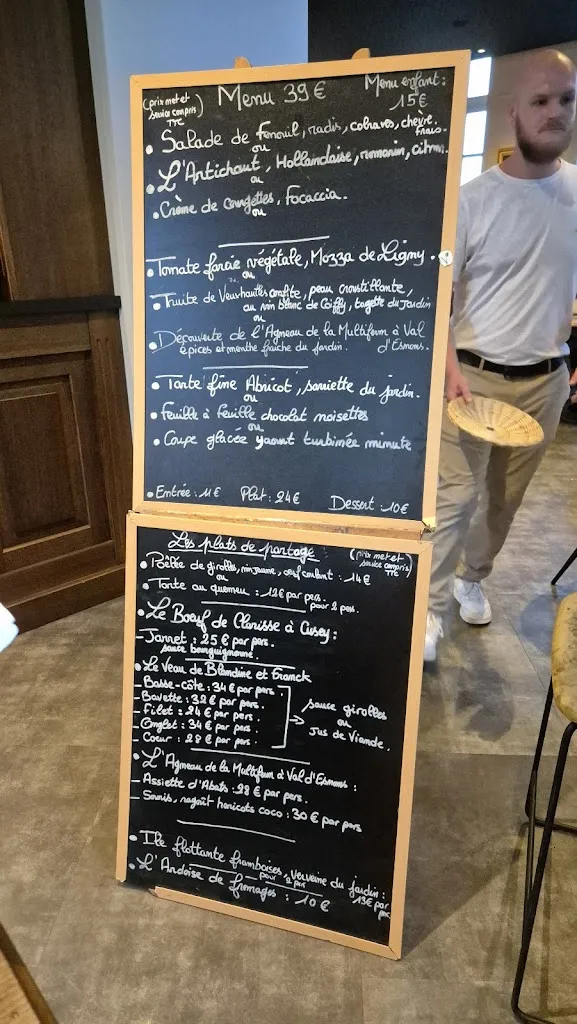 (prix net et service compris TTC)
Menu 39€
Menu enfant: 15€
• Salade de fenouil, radis, colraves, chèvre frais.
ou
• L'Antichaut, Hollandaise, romarin, citron.
ou
• Crème de courgettes, Focaccia.
ou
• Tomate farcie végétale, Mozza de Ligny.
ou
• Truite de Veuxhaulles confite, peau croustillante,
au vin blanc de Coiffy, tagette du Jardin
ou
• Découverte de l'Agneau de la Multifum à Val
épices et menthe fraîche du jardin. d'Esnoms.
• Tarte fine Abricot, sarriette du jardin.
ou
• Feuille à feuille chocolat noisettes
ou
• Coupe glacée yaourt turbinée minute
• Entrée : 11€ Plat : 24€ Dessert : 10€
Les plats de partage
(prix net et service compris TTC)
• Poêlée de girolles, vin jaune, œuf coulant : 14€
ou
• Tarte au quemeu : 12€ par pers.
pour 2 pers.
• Le Bœuf de Clarisse à Cusey :
– Jarret : 25€ par pers.
sauce bourguignonne.
• Le Veau de Blandine et Franck
– Basse-côte : 34€ par pers.
– Bavette : 32€ par pers.
– Filet : 24€ par pers.
– Onglet : 34€ par pers.
– Coeur : 28€ par pers.
→ sauce girolles
ou
Jus de Viande.
• L'Agneau de la Multifum à Val d'Esnoms :
– Assiette d'Abats : 28€ par pers.
– Souris, ragoût haricots coco : 30€ par pers
• Ile flottante framboises, verveine du jardin :
pour 2 pers
13€ par pers
• L'Ardoise de fromages : 10€